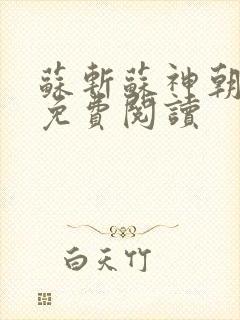 蘇斬蘇神朝
免費閱讀
白天竹